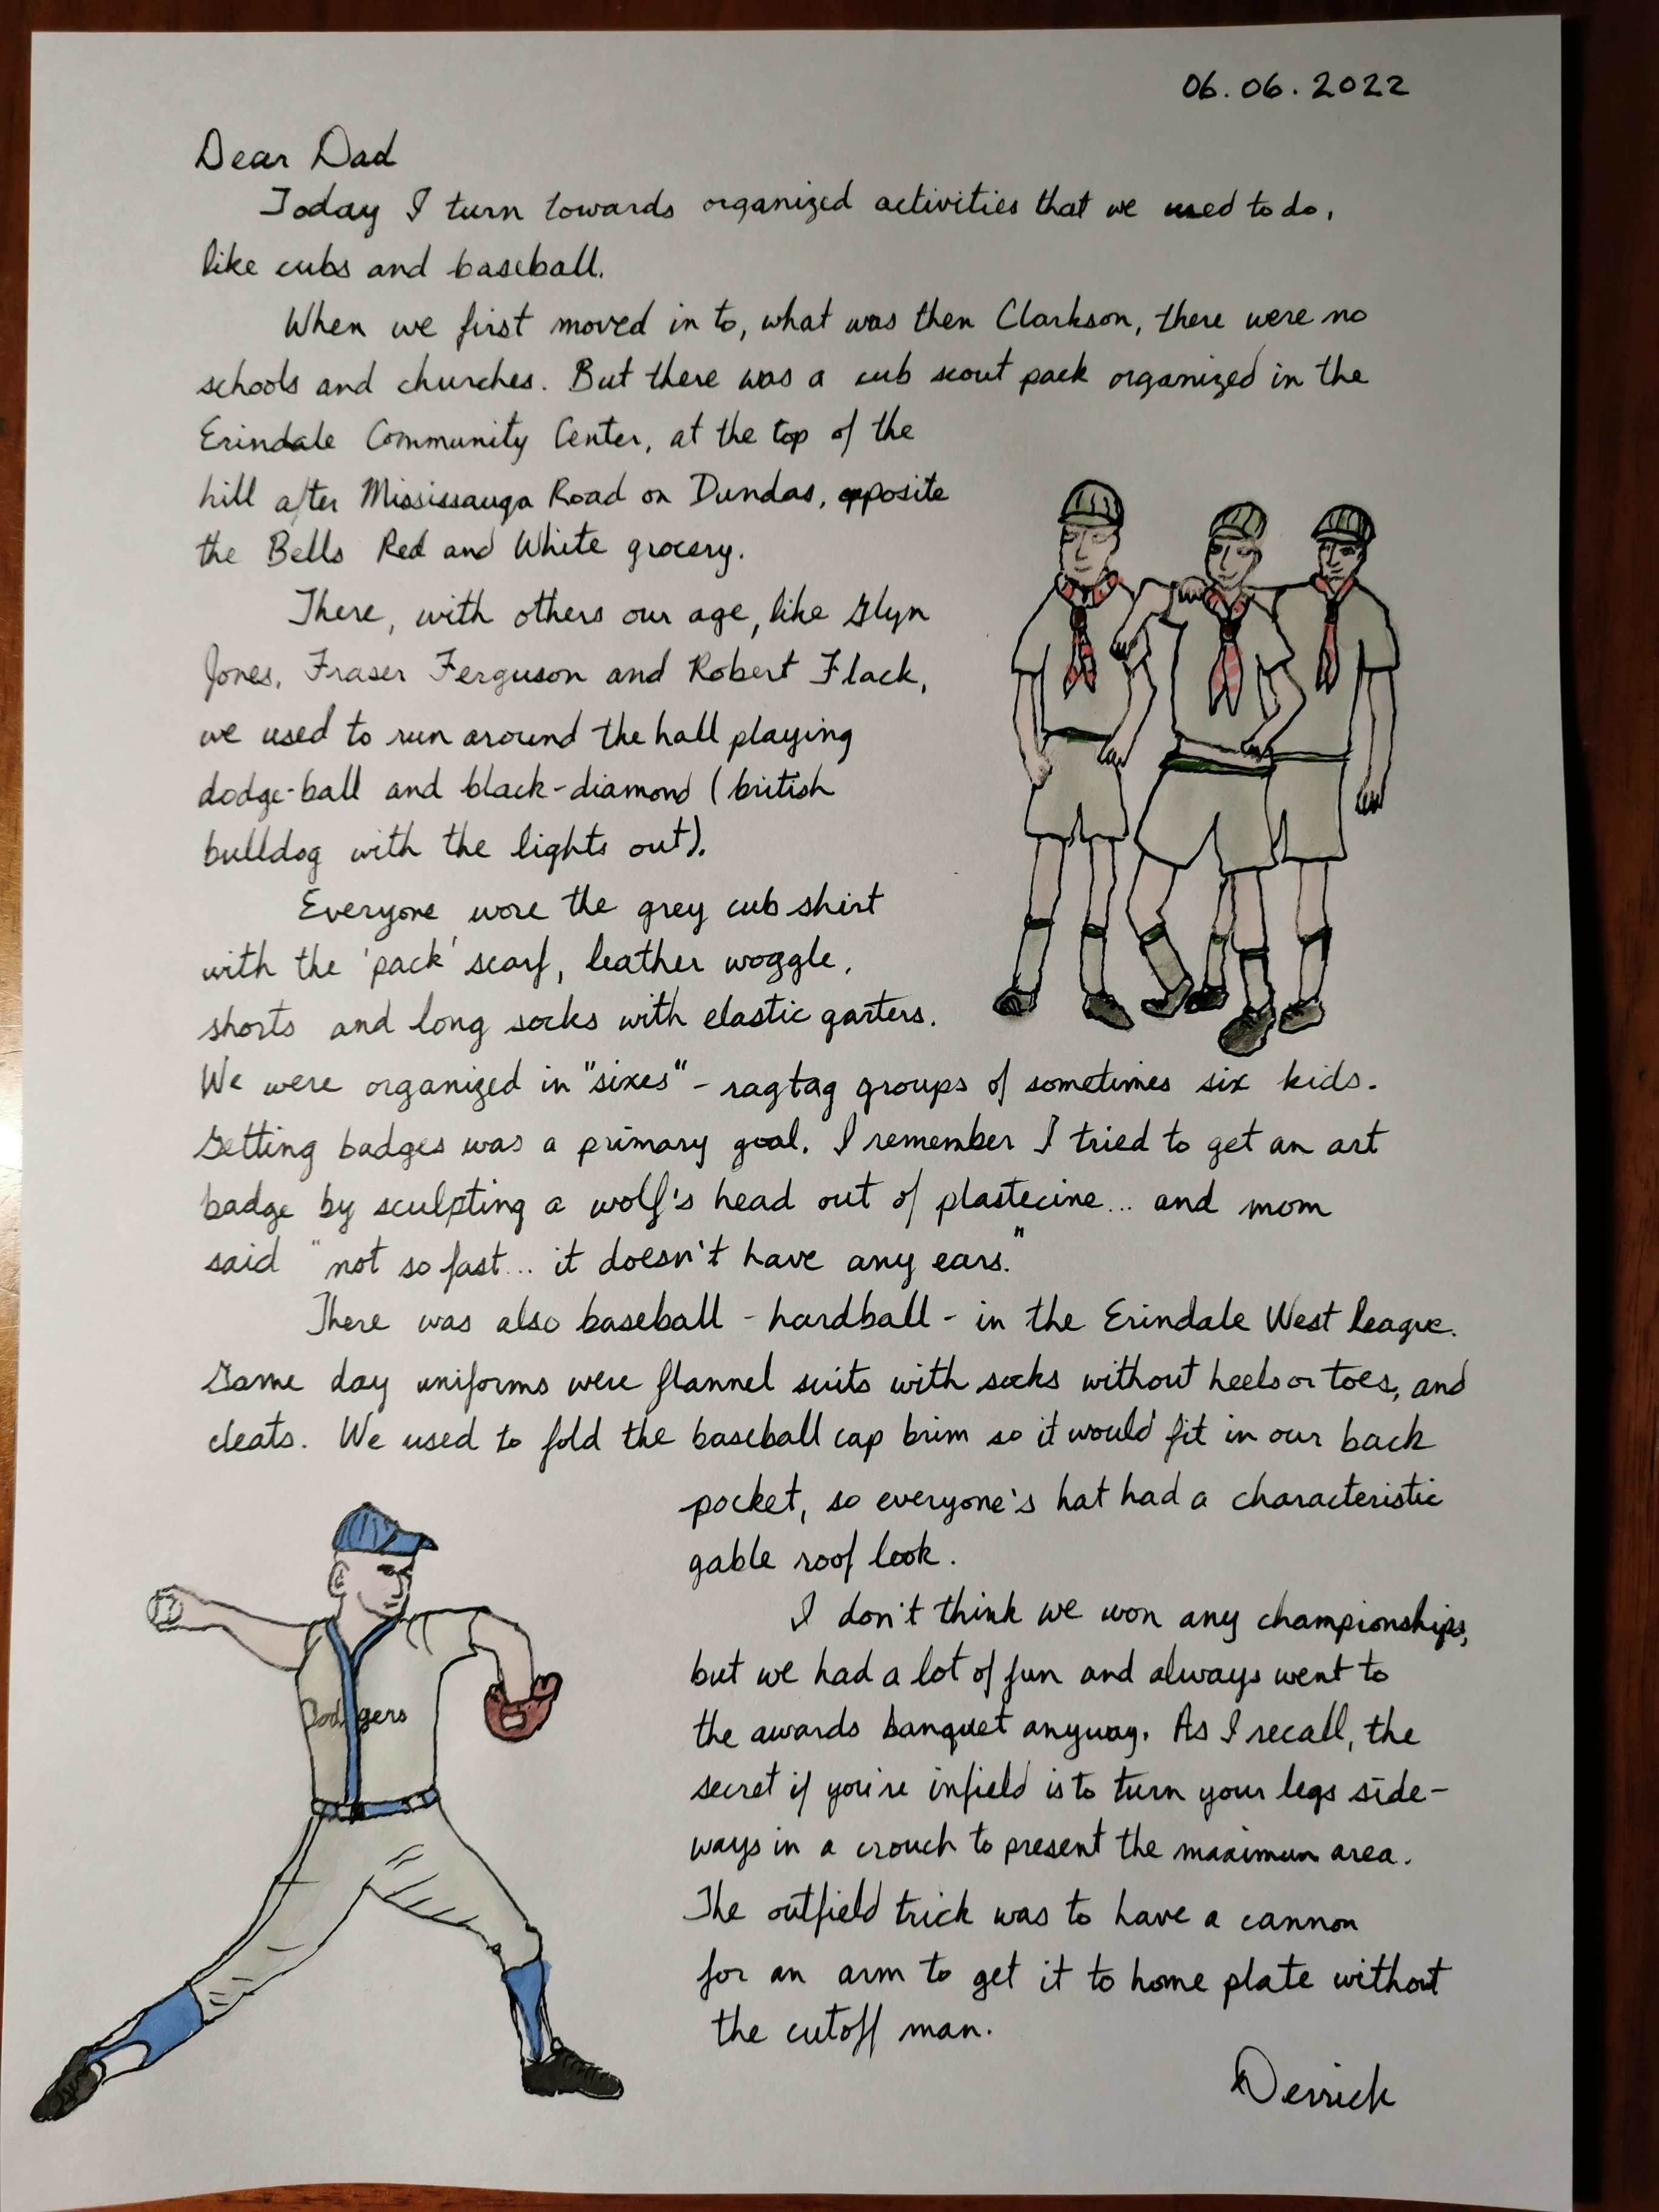 06.06.2022
Dear Dad
Today I turn towards organized activities that we used to do,
like cubs and baseball.
When we first moved in to, what was then Clarkson, there were no
schools and churches. But there was a cub scout pack organized in the
Erindale Community Center, at the top of the
hill after Mississauga Road on Dundas, opposite
the Bells Red and White grocery.
There, with others our age, like Glyn
Jones, Fraser Ferguson and Robert Flack,
we used to run around the hall playing
dodge-ball and black-diamond (british
bulldog with the lights out).
Everyone wore the grey cub shirt
with the 'pack' scarf, leather woggle,
shorts and long socks with elastic garters.
We were organized in "sixes" - ragtag groups of sometimes six kids.
Getting badges was a primary goal. I remember I tried to get an art
badge by sculpting a wolf's head out of plastecine... and mom
said "not so fast... it doesn't have any ears."
There was also baseball - hardball - in the Erindale West league.
Game day uniforms were flannel suits with socks without heels or toes, and
cleats. We used to fold the baseball cap brim so it would fit in our back
pocket, so everyone's hat had a characteristic
gable roof look.
I don't think we won any championships,
but we had a lot of fun and always went to
the awards banquet anyway. As I recall, the
secret if you're infield is to turn your legs side-
ways in a crouch to present the maximum area.
The outfield trick was to have a cannon
for an arm to get it to home plate without
the cutoff man.
Derrick
Dodgers